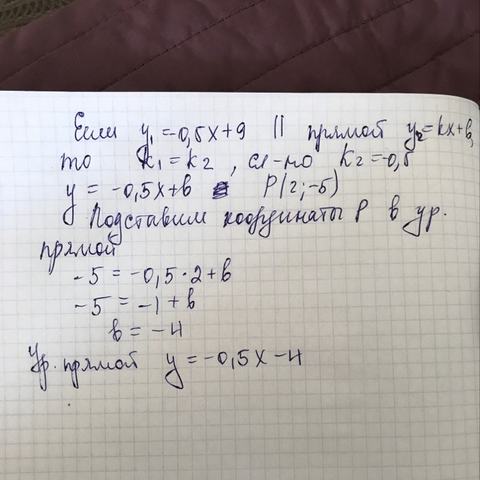 Если y₁=-0,5x+9 || прямой y₂=kx+b,
то k₁=k₂, сл-но k₂=-0,5
y = -0,5x+b P(2;-5)
Подставим координаты P в ур.
прямой
-5 = -0,5·2+b
-5 = -1+b
b = -4
Ур. прямой y=-0,5x-4